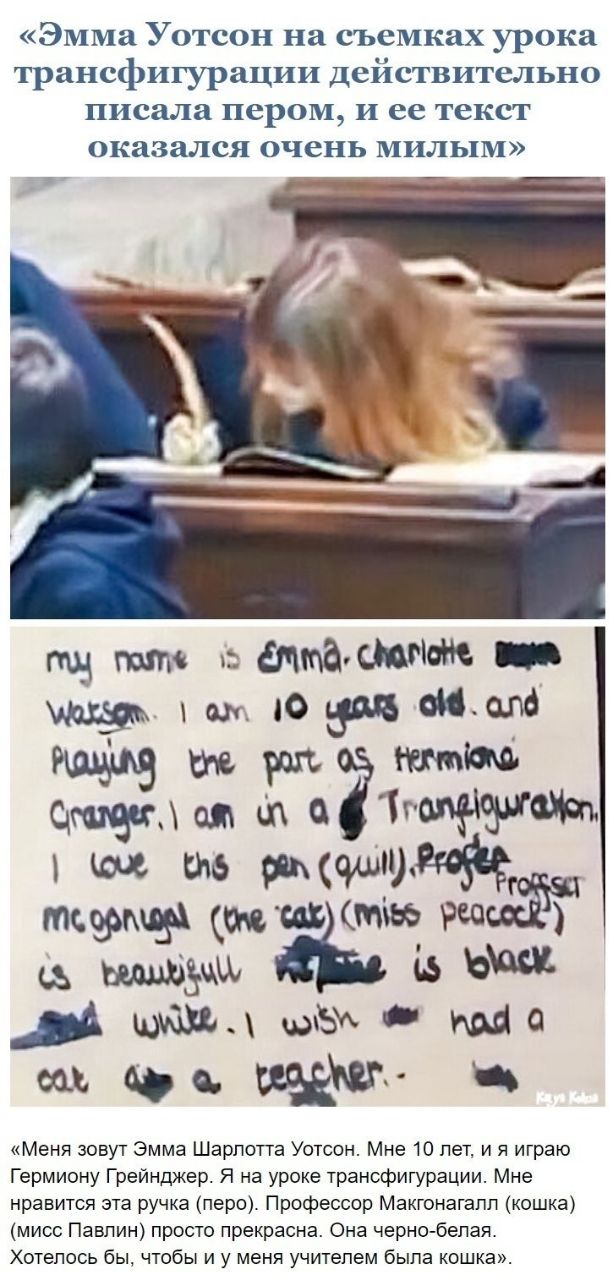 «Эмма Уотсон на съемках урока
трансфигурации действительно
писала пером, и ее текст
оказался очень милым»
my name is Emma. Charlotte
Watsom. I am 10 years old. and
Playing the part as Hermione
Granger. I am in a Tranfiguration.
I love this pen (quill). Profer
Proffser
mcgonigal (the cat) (miss peacock)
is beautifull is black
white. I wish had a
cat as a teacher.-
«Меня зовут Эмма Шарлотта Уотсон. Мне 10 лет, и я играю
Гермиону Грейнджер. Я на уроке трансфигурации. Мне
нравится эта ручка (перо). Профессор Макгонагалл (кошка)
(мисс Павлин) просто прекрасна. Она черно-белая.
Хотелось бы, чтобы и у меня учителем была кошка».